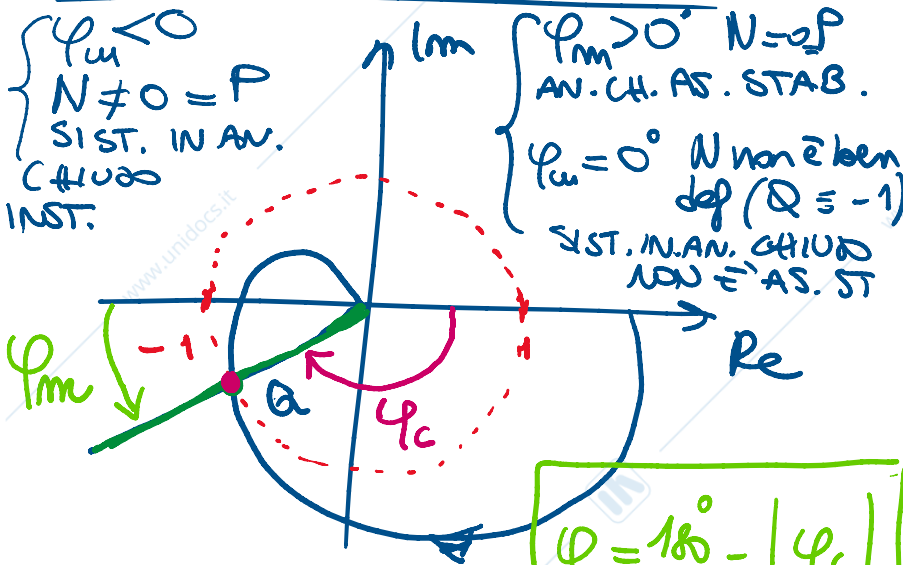 φm < 0
N ≠ 0 = P
SIST. IN AN.
CHIUSO
INST.
Im
φm > 0° N = 0 P
AN. CH. AS. STAB.
φm = 0° N non è ben
def (Q ≡ -1)
SIST. IN. AN. CHIUSO
NON È AS. ST
www.unidocs.it
-1
1
Re
φm
Q
φc
φ = 180° - |φc|